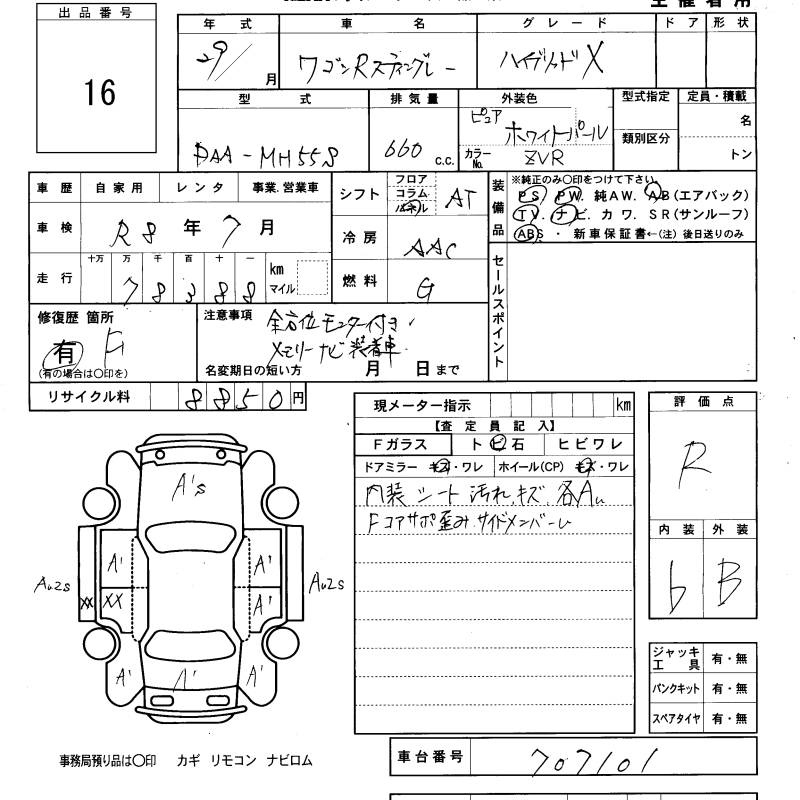 出品番号
16
年式 車名 グレード ドア 形状
29/ 月 ワゴンRスティングレー ハイブリッドX
型式 排気量 外装色 型式指定 定員・積載
DAA-MH55S 660 c.c. ピュア ホワイトパール 類別区分 名
カラーNo. ZVR トン
車歴 自家用 レンタ 事業.営業車
車検 R8 年 7 月
走行 十万 万 千 百 十 一 km マイル
7 8 3 8 8
シフト フロア コラム パネル AT
冷房 AAC
燃料 G
装備品 ※純正のみ〇印をつけて下さい。
PS. PW. 純AW. AB(エアバック)
TV. ナビ. カワ. SR(サンルーフ)
ABS ・ 新車保証書←(注) 後日送りのみ
セールスポイント
修復歴 箇所
有 F
(有の場合は〇印を)
注意事項 全方位モニター付き、
メモリーナビ装着車
名変期日の短い方 月 日まで
リサイクル料 8850円
現メーター指示 km
【査定員記入】
Fガラス トビ石 ヒビワレ
ドアミラー キズ・ワレ ホイール(CP) キズ・ワレ
内装 シート 汚れ.キズ. 各Au
Fコアサポ歪み.サイドメンバーU
評価点
R
内装 外装
b B
ジャッキ工具 有・無
パンクキット 有・無
スペアタイヤ 有・無
A's
A' A'
Au2s XX XX A' Au2s
A' A' A'
事務局預り品は〇印 カギ リモコン ナビロム
車台番号 707101